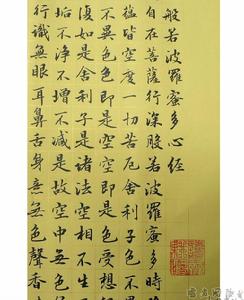 般若波羅蜜多心經
自在菩薩行深般若波羅蜜多時
蘊皆空度一切苦厄舍利子色不異
不異色色即是空空即是色受想
復如是舍利子是諸法空相不生
垢不淨不增不減是故空中無色
行識無眼耳鼻舌身意無色聲香